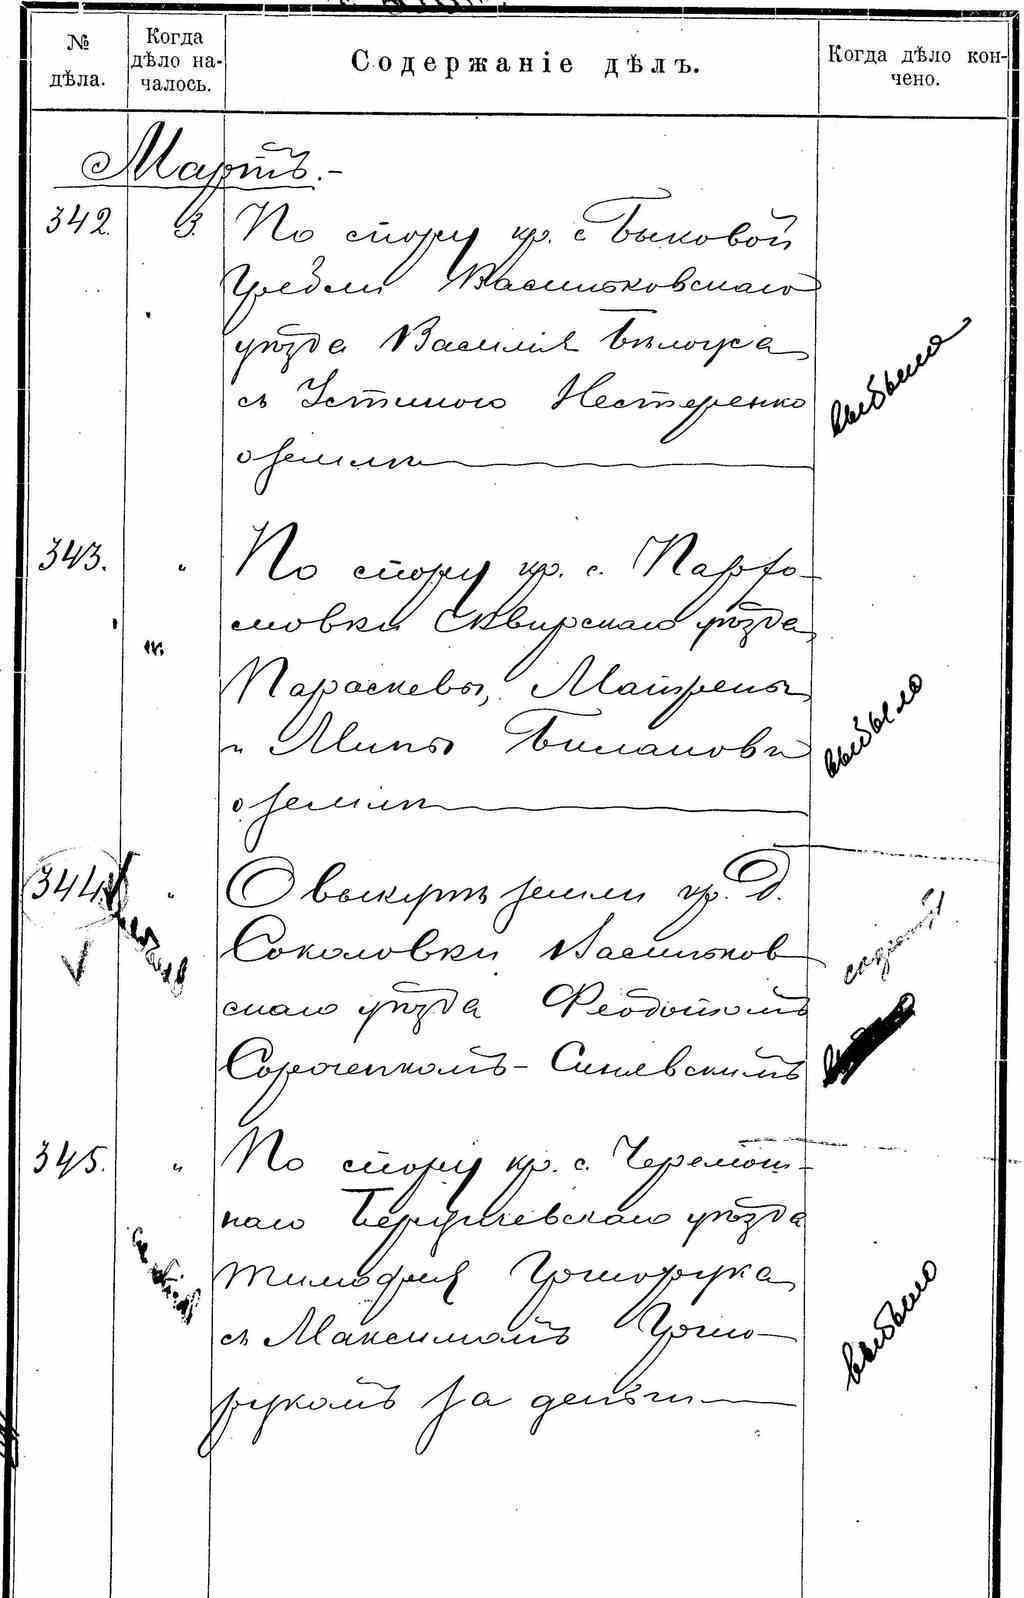 № дѣла.
Когда дѣло на-
чалось.
Содержаніе дѣлъ.
Когда дѣло кон-
чено.
Мартъ.-
342. 3. По спору кр. с. Быковой
Гребли Васильковскаго
уѣзда Василія Бѣлоуса
съ Устиною Нестеренко
о землѣ
выбыло
343. " По спору кр. с. Парфо-
мовки Сквирскаго уѣзда
Параскевы, Матрены
и Мины
о землѣ
выбыло
344. " О выкупѣ земли кр. д.
Соколовки Васильков
скаго уѣзда Феодотомъ
Сороченкомъ - Синявскимъ
345. " По спору кр. с. Черемош-
наго Бердичевскаго уѣзда
Тимофея
съ Максимомъ
за деньги
выбыло